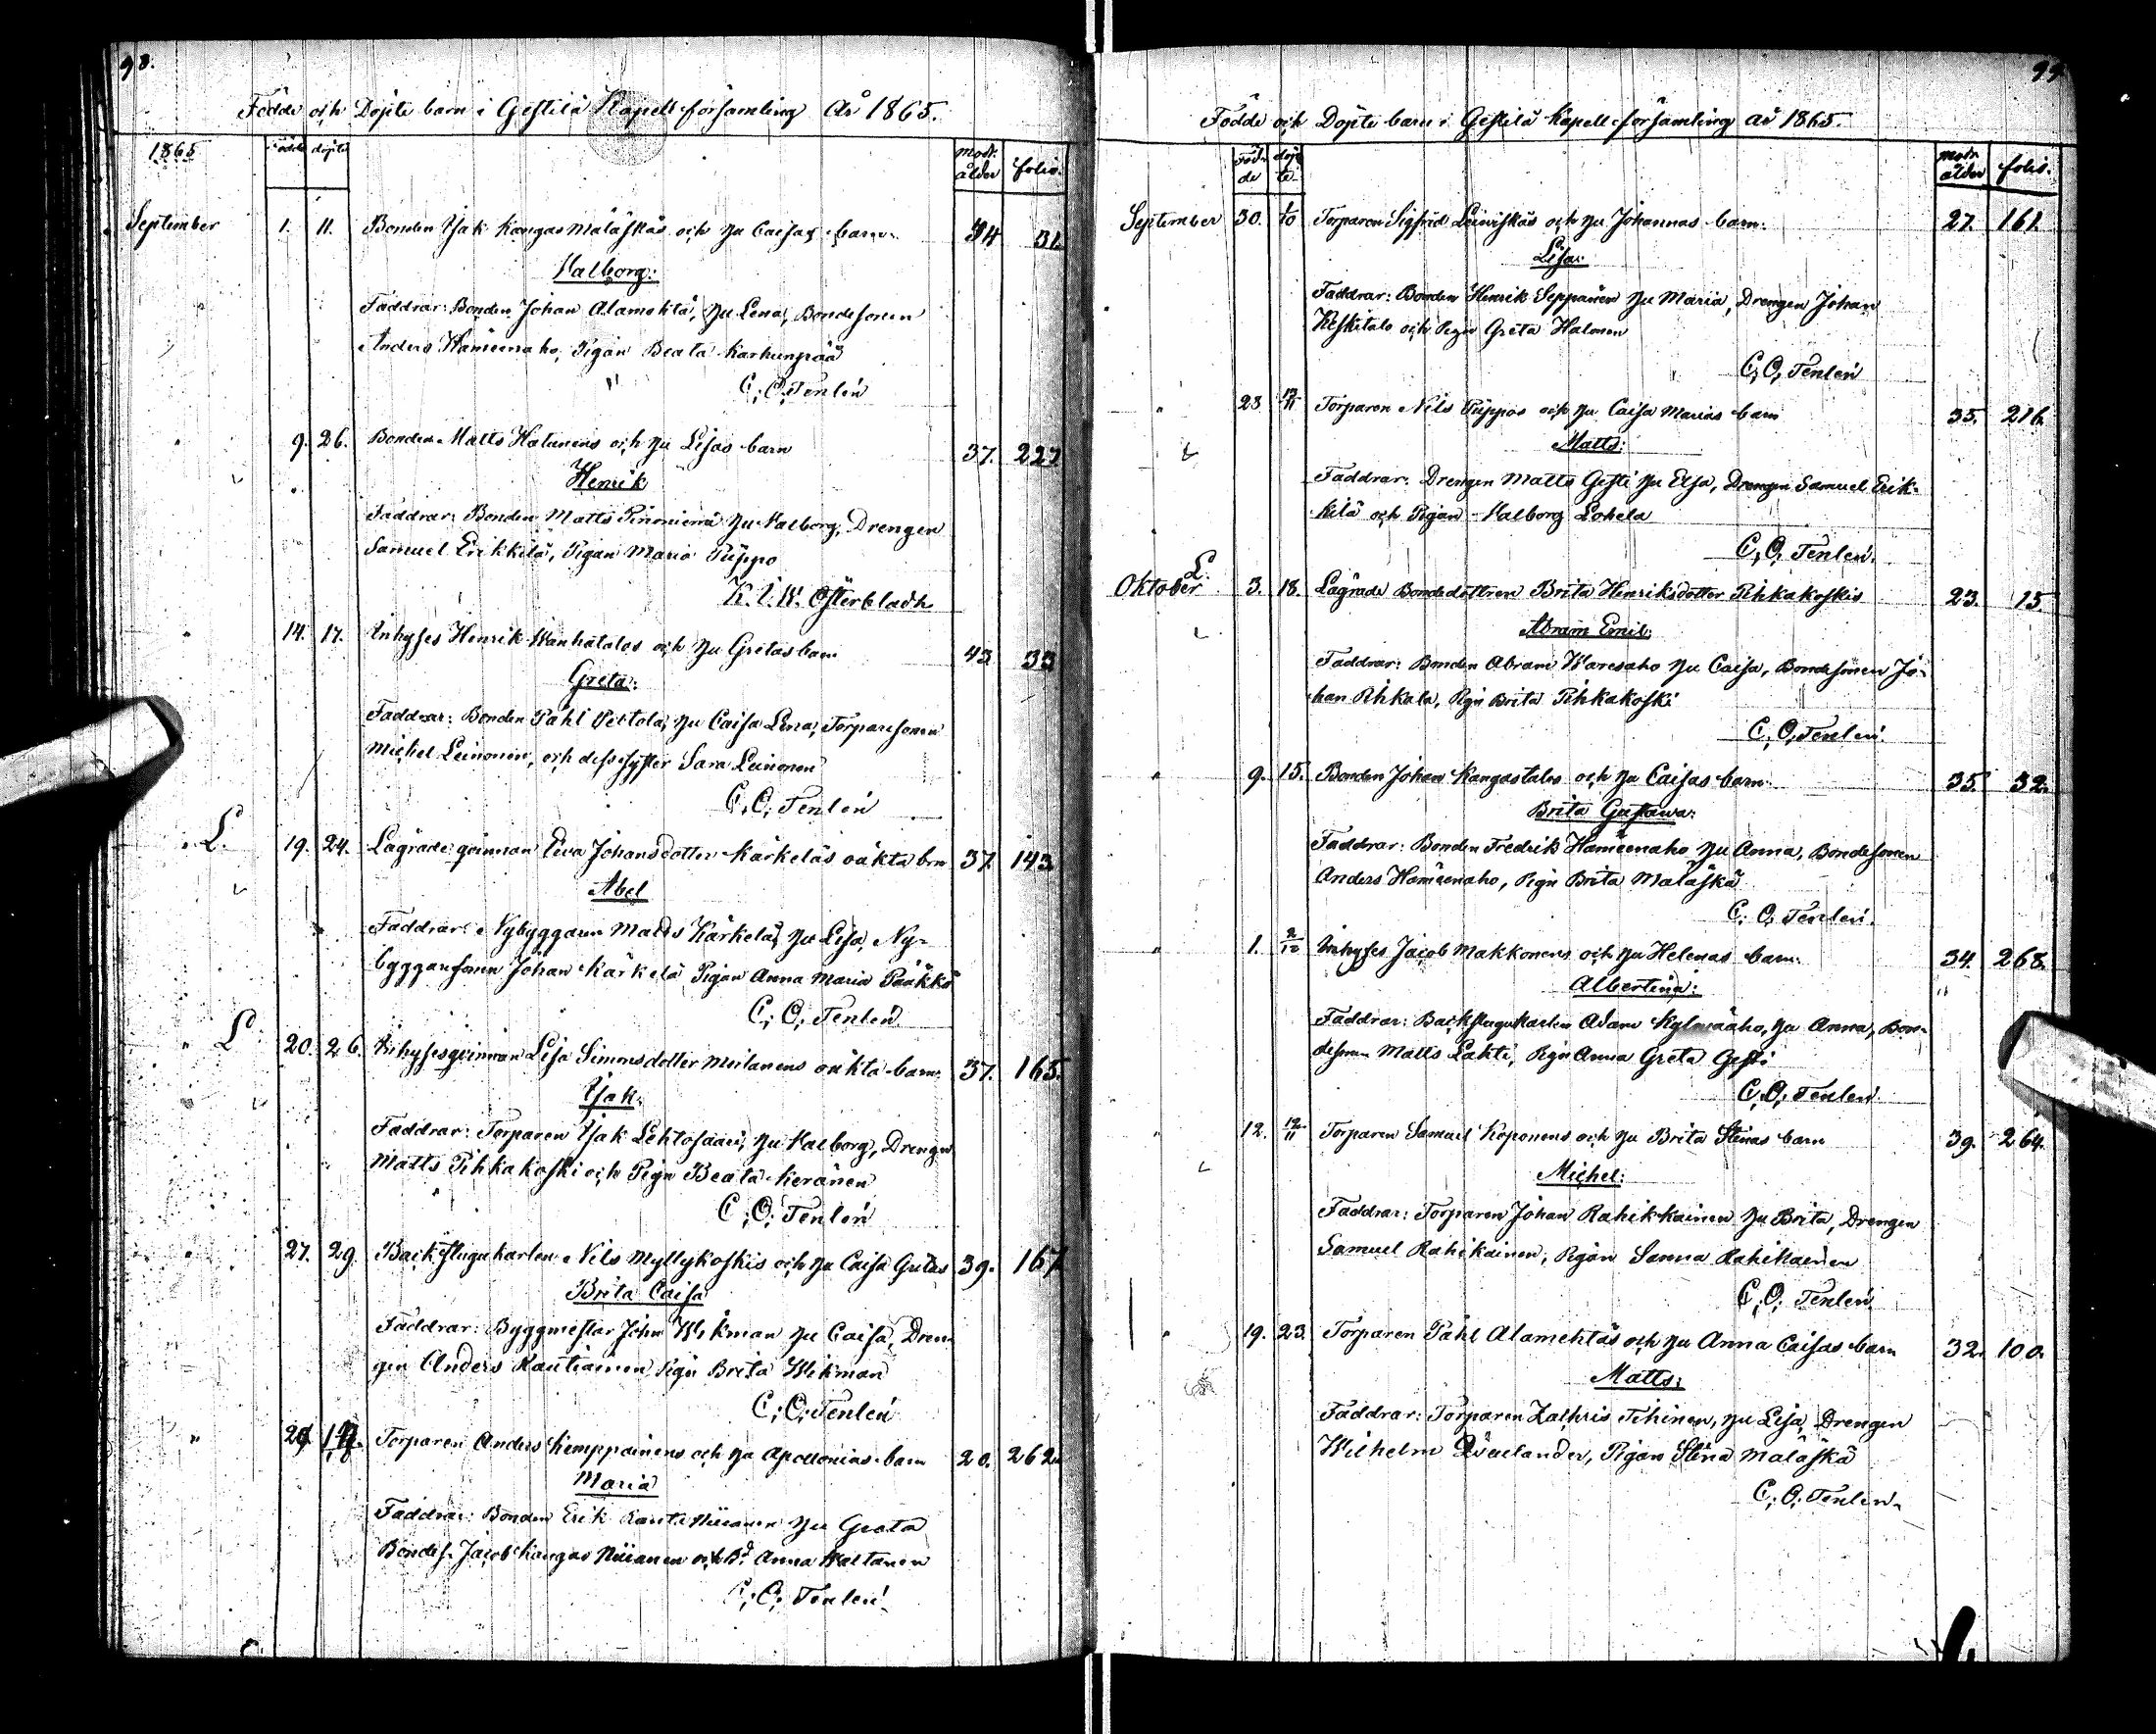 98.
Födde och Döpte barn i Gestilä Kapell församling År 1865.
1865 födde döpte modr. ålder folio.
September 1. 11. Bonden Isak Kangas Mäläskäs och hu Caisas barn 34 31.
Valborg:
Faddrar: Bonden Johan Alamehtä, hu Lena, Bondesonen
Anders Hämeenaho, Pigan Beata Karhunpää
C; O; Tenlén
" 9. 26. Bonden Matts Hatunens och hu Lisas barn 37. 227
Henrik
Faddrar: Bonden Matts Pinoniemi hu Valborg, Drengen
Samuel Erikkilä, Pigan Maria Piippo
K. I. W. Österbladh
" 14. 17. Inhyses Henrik Wanhatalos och hu Gretas barn 43 33
Greta:
Faddrar: Bonden Påhl Pertola, hu Caisa Lena, Torparesonen
Michel Leinonen, och dess syster Sara Leinonen
C; O; Tenlén
" L. 19. 24. Lägrade qvinnan Eva Johansdotter Kärkeläs oäkta brn 37. 143
Abel
Faddrar: Nybyggaren Matts Kärkelä, hu Lisa, Ny-
byggaresonen Johan Kärkelä Pigan Anna Maria Pääkkö
C; O; Tenlén
" L. 20. 26. Inhysesqvinnan Lisa Simonsdotter Meilanens oäkta barn. 37. 165.
Isak:
Faddrar: Torparen Isak Lehtosaari, hu Valborg, Drengen
Matts Pihkakoski och Pign Beata Keränen
C; O; Tenlén
" 27. 29. Backstugukarlen Nils Myllykoskis och hu Caisa Gretas 39. 167
Brita Caisa
Faddrar: Byggmestar John Wikman hu Caisa, Dren-
gen Anders Rautiainen Pign Brita Wikman
C; O; Tenlén
" Torparen Anders Kemppainens och hu Apollonias barn 20. 262.
Maria
Faddrar: Bonden Erik hu Greta
Bondes. Jacob Kangas Niiranen och Bd. Anna Waltanen
C; O; Tenlén
99
Födde och Döpte barn i Gestilä Kapell församling år 1865.
Föd-de döp-te modr. ålder folio.
September 30. 1/10 Torparen Sigfrid Leiviskäs och hu Johannas barn. 27. 161.
Lisa:
Faddrar: Bonden Henrik Seppänen hu Maria, Drengen Johan
Keskitalo och Pign Greta Halonen
C; O; Tenlén
" 23 12/11 Torparen Nils Piippos och hu Caisa Marias barn 35. 216.
Matts:
Faddrar: Drengen Matts Gesti hu Elsa, Drengen Samuel Erik-
kilä och Pigan Valborg Lohela
C; O; Tenlén.
Oktober L. 3. 18. Lägrade Bondedottren Brita Henriksdotter Pihkakoskis 23. 15
Abram Emil:
Faddrar: Bonden Abram Waresaho hu Caisa, Bondesonen Jo-
han Pihkala, Pign Brita Pihkakoski
C; O; Tenlén.
" 9. 15. Bonden Johan Kangastalos och hu Caisas barn 35. 32.
Brita Gustawa:
Faddrar: Bonden Fredrik Hämeenaho hu Anna, Bondesonen
Anders Hämeenaho, Pign Brita Mäläskä
C; O; Tenlén.
" 1. 2/12 Inhyses Jacob Makkonens och hu Helenas barn. 34. 268.
Albertina:
Faddrar: Backstugukarlen Adam Kylmäaho, hu Anna, Bon-
desonen Matts Lahti, Pign Anna Greta Gesti
C; O; Tenlén
" 12. 12/11 Torparen Samuel Koponens och hu Brita Stinas barn 39. 264.
Michel:
Faddrar: Torparen Johan Rahikkainen hu Brita, Drengen
Samuel Rahikainen, Pigan Sanna Rahikainen
C; O; Tenlén
" 19. 23. Torparen Påhl Alamehtäs och hu Anna Caisas barn 32. 100.
Matts:
Faddrar: Torparen Zachris Tihinen, hu Lisa, Drengen
Wilhelm Pigan Stina Mäläskä
C; O; Tenlén